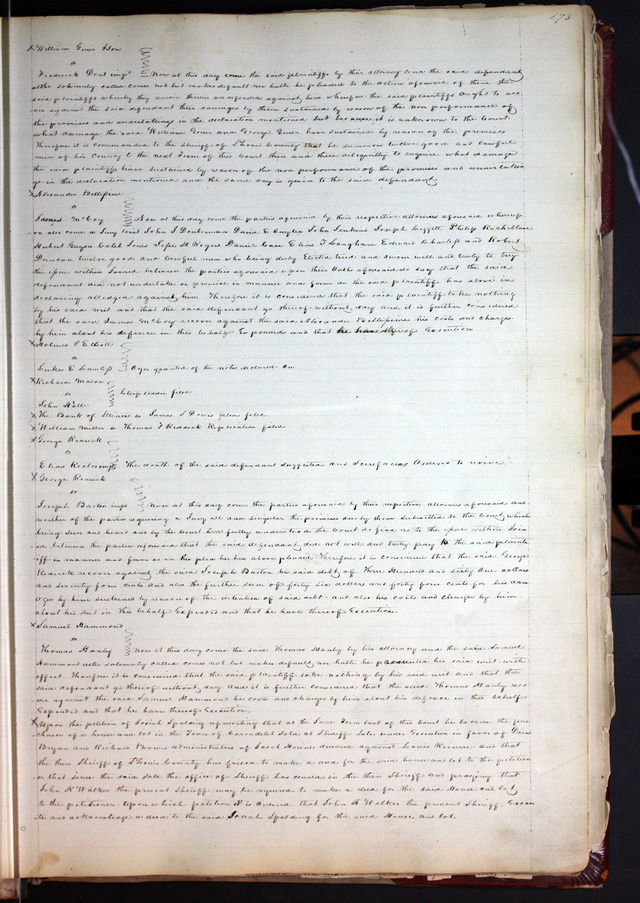 173
x William Grier &son
o
Frederick Dent impd Now at this day come the said plaintiffs by their attorney and the said defendant
altho solemnly called comes not but makes default nor hath he pleaded to the action aforesaid of them the
said plaintiffs whereby they remain therein undefended against him wherefore the said plaintiffs ought to reco
ver against the said defendant their damages by them sustained by reason of the non performance of
the promises and undertakings in the declaration mentioned but because it is unknown to the Court
what damage the said William Grier and George Grier have sustained by reason of the premises
Therefore it is commanded to the Sheriff of St Louis County that he summon twelve good and lawful
men of his County to the next Term of this Court then and there diligently to enquire what damage
the said plaintiffs have sustained by reason of the non performance of the promises and undertakin
gs in the declaration mentioned and the same day is given to the said defendant
x Alexander Bellissime
o
James McCoy Now at this day come the parties aforesaid by their respective attornies aforesaid whereup
on also come a Jury to wit John Daniel C John Jenkins Joseph Liggett Philip
Hubert Guyon Caleb Jones Jefse H Rogers Daniel Case Elias T Langham Edward Charless and Robert
Duncan twelve good and lawful men who being duly Elected tried and sworn well and truly to try
the ifsue within Joined between the parties aforesaid upon their Oath aforesaid do say that the said
defendant did not undertake or promise in manner and form as the said plaintiff has above in
declaring alledged against him Therefore it is considered that the said plaintiff take nothing
by his said writ and that the said defendant go thereof without day And it is further considered
that the said James McCoy recover against the said Alexander Bellissime his costs and charges
by him about his defence in this behalf Expended and that he have thereof Execution
x Holmes & Elliott
o
Luke E Lawless Oyer granted of the notes declared on
x Richard Mason
o
John Hall Interpleader filed
x The Bank of Illinois vs James S Dorris pleas filed
x William Miller vs Thomas F Riddick Replication filed
x George Rearick
o
Elias Rector impd The death of the said defendant suggested and Scirefacias Ordered to revive
x George Rearick
o
Joseph Barton impd Now at this day come the parties aforesaid by their respective attornies aforesaid and
neither of the parties requiring a Jury all and singular the premises are by them submitted to the Court which
being seen and heard and by the Court here fully understood the Court do find as to the ifsue within Joine
d between the parties aforesaid that the said defendant did not well and truly pay to the said plainti
ff in manner and form as in his plea he has above pleaded Therefore it is considered that the said George
Rearick recover against the said Joseph Barton his said debt of Three Hundred and sixty One dollars
and seventy four Cents and also the further sum of forty six dollars and forty four Cents for his dam
ages by him sustained by reason of the detention of said debt and also his costs and charges by him
about his suit in this behalf Expended and that he have thereof Execution
x Samuel Hammond
o
Thomas Hanly Now at this day come the said Thomas Hanly by his attorney and the said Samuel
Hammond altho solemnly called comes not but makes default nor hath he prosecuted his said suit with
effect Therefore it is considered that the said plaintiff take nothing by his said writ and that the
said defendant go thereof without day And it is further considered that the said Thomas Hanly reco
ver against the said Samuel Hammond his costs and charges by him about his defence in this behalf
Expended and that he have thereof Execution
x Upon the petition of Josiah Spalding representing that at the June Term last of this Court he became the pur
chaser of a house and lot in the Town of Carondelet sold at Sheriff Sale under Execution in favor of David
Bryan and Richard administrators of Jacob Hoines deceased against Louis and that
the then Sheriff of St Louis County has failed to make a deed for the said house and lot to the petition
er that since the said Sale the office of Sheriff has ceased in the then Sheriff and praying that
John K Walker the present Sheriff may be required to make a deed for the said House and lot
to the petitioner Upon which petition It is Ordered that John K Walker the present Sheriff Execu
te and acknowledge a deed to the said Josiah Spalding for the said House and lot.